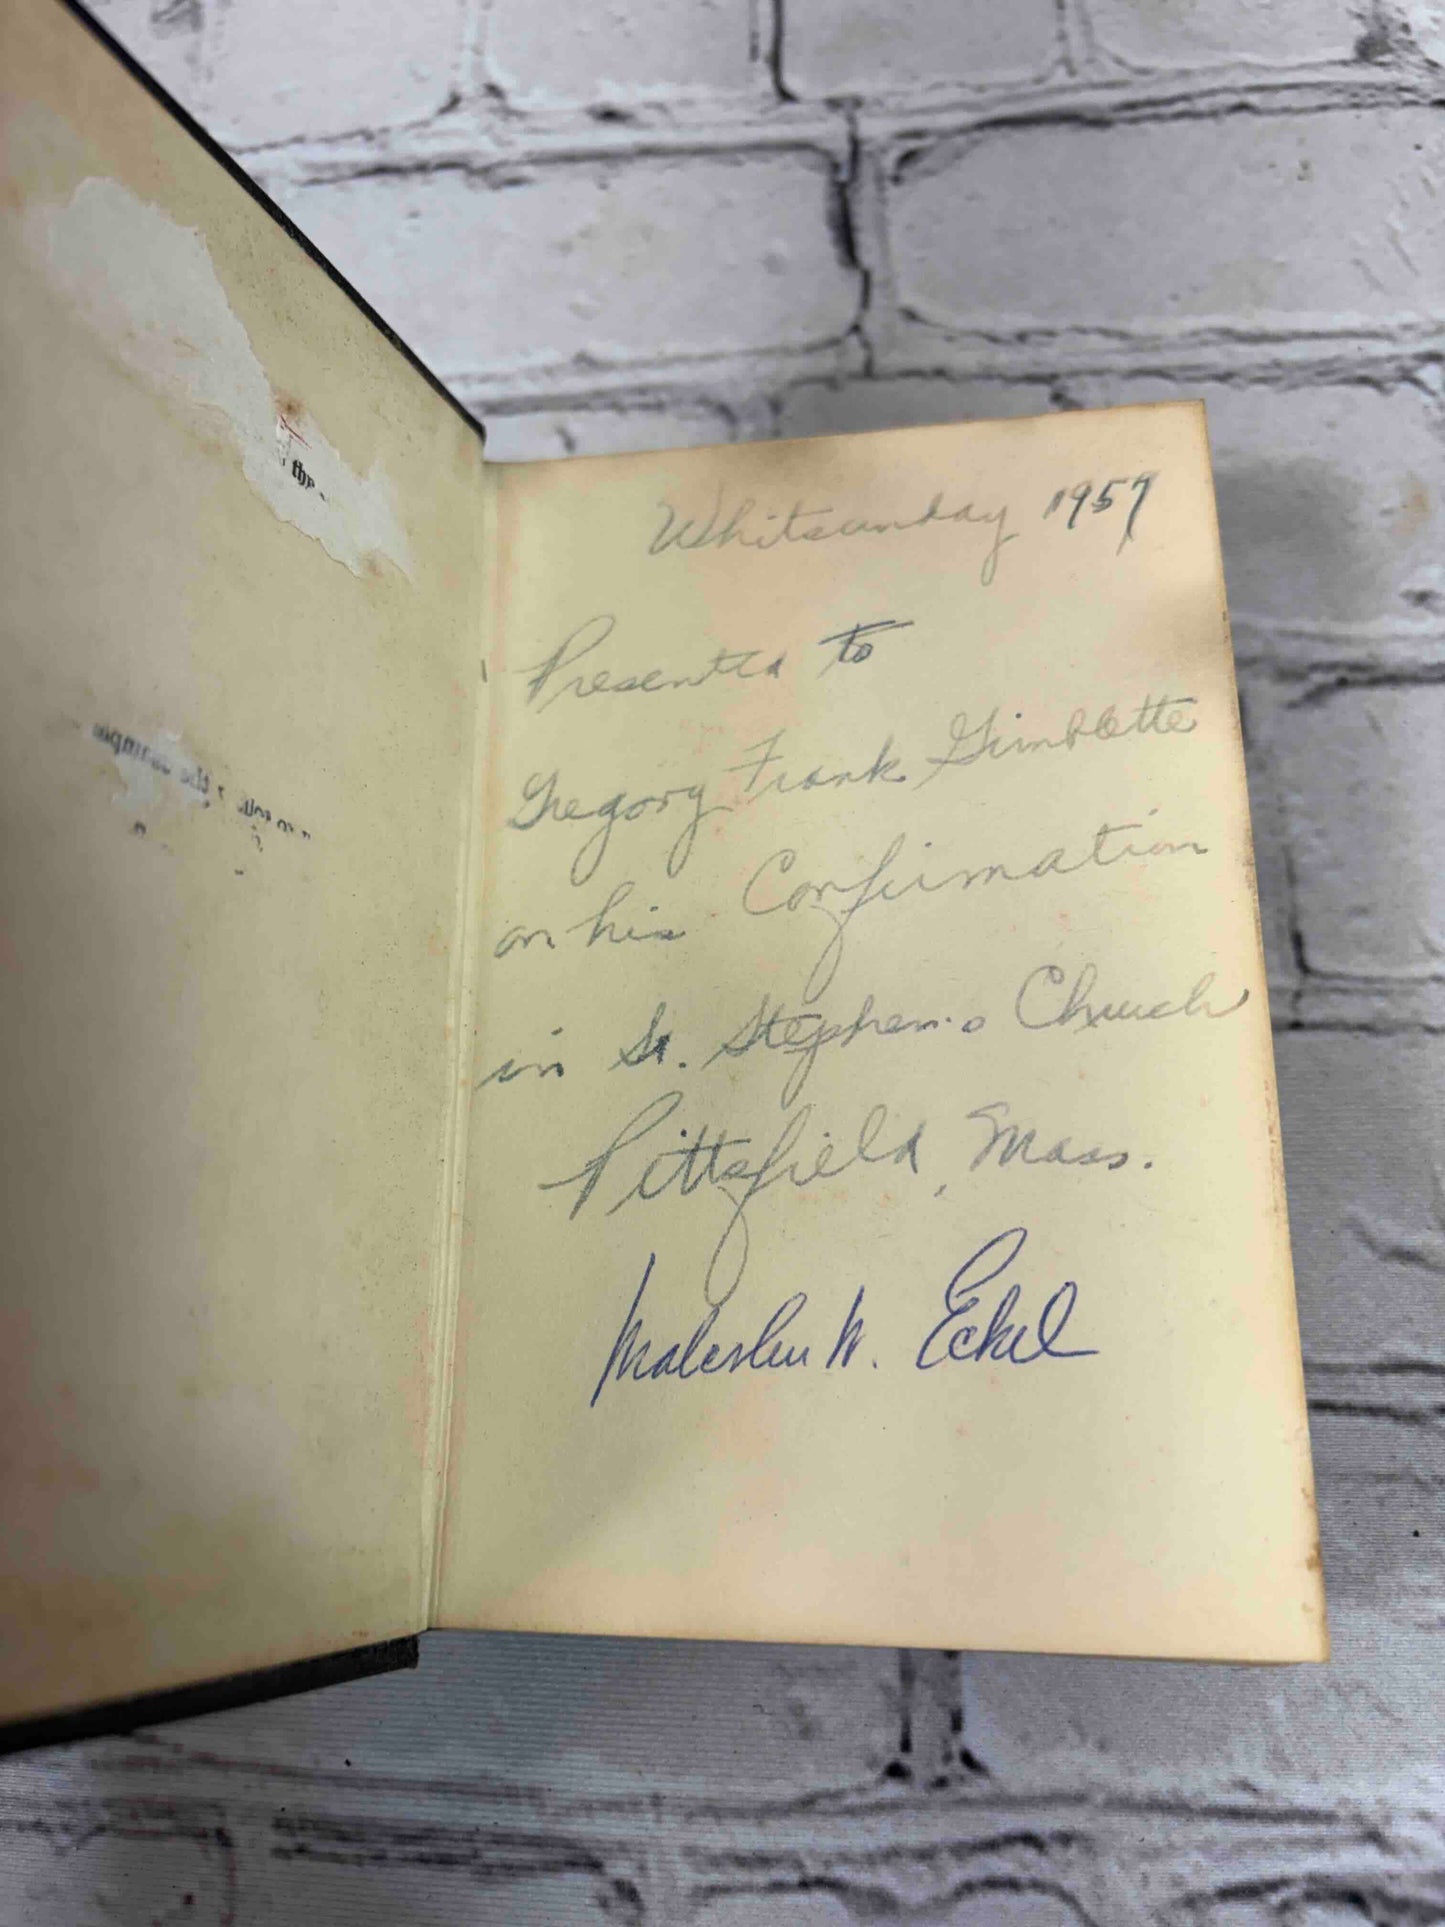 the
the example
Whitsunday 1957
Presented to
Gregory Frank Gimblette
on his Confirmation
in St. Stephen's Church
Pittsfield, Mass.
Malcolm W. Eckel